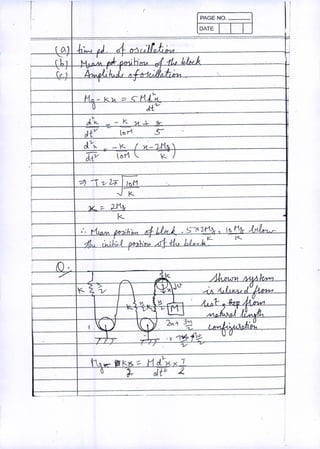 PAGE NO.
DATE
(a) time pd. of oscillation
(b) Mean position of the block
(c) Amplitude of oscillation
Mg - kx = 5M d²x
dt²
d²x = -k x + g
dt² 10M 5
d²x = -k ( x - 2Mg )
dt² 10M k
⇒ T = 2π √10M
k
x = 2Mg
k
∴ Mean position of block
the initial position of the block
Q.
k
shown system
k x
2
is released from
k M
rest, from
natural length
configuration
Mg - kx = M d²x × 7
2 dt² 2